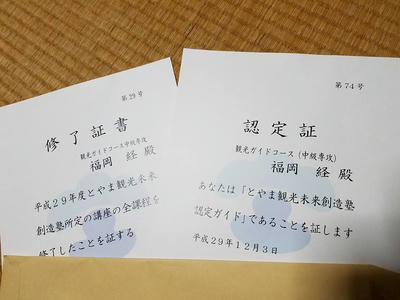 第29号
修了証書
観光ガイドコース中級専攻
福岡 経 殿
平成29年度とやま観光未来
創造塾所定の講座の全課程を
修了したことを証する
第74号
認定証
観光ガイドコース(中級専攻)
福岡 経 殿
あなたは「とやま観光未来創造塾
認定ガイド」であることを証します
平成29年12月3日